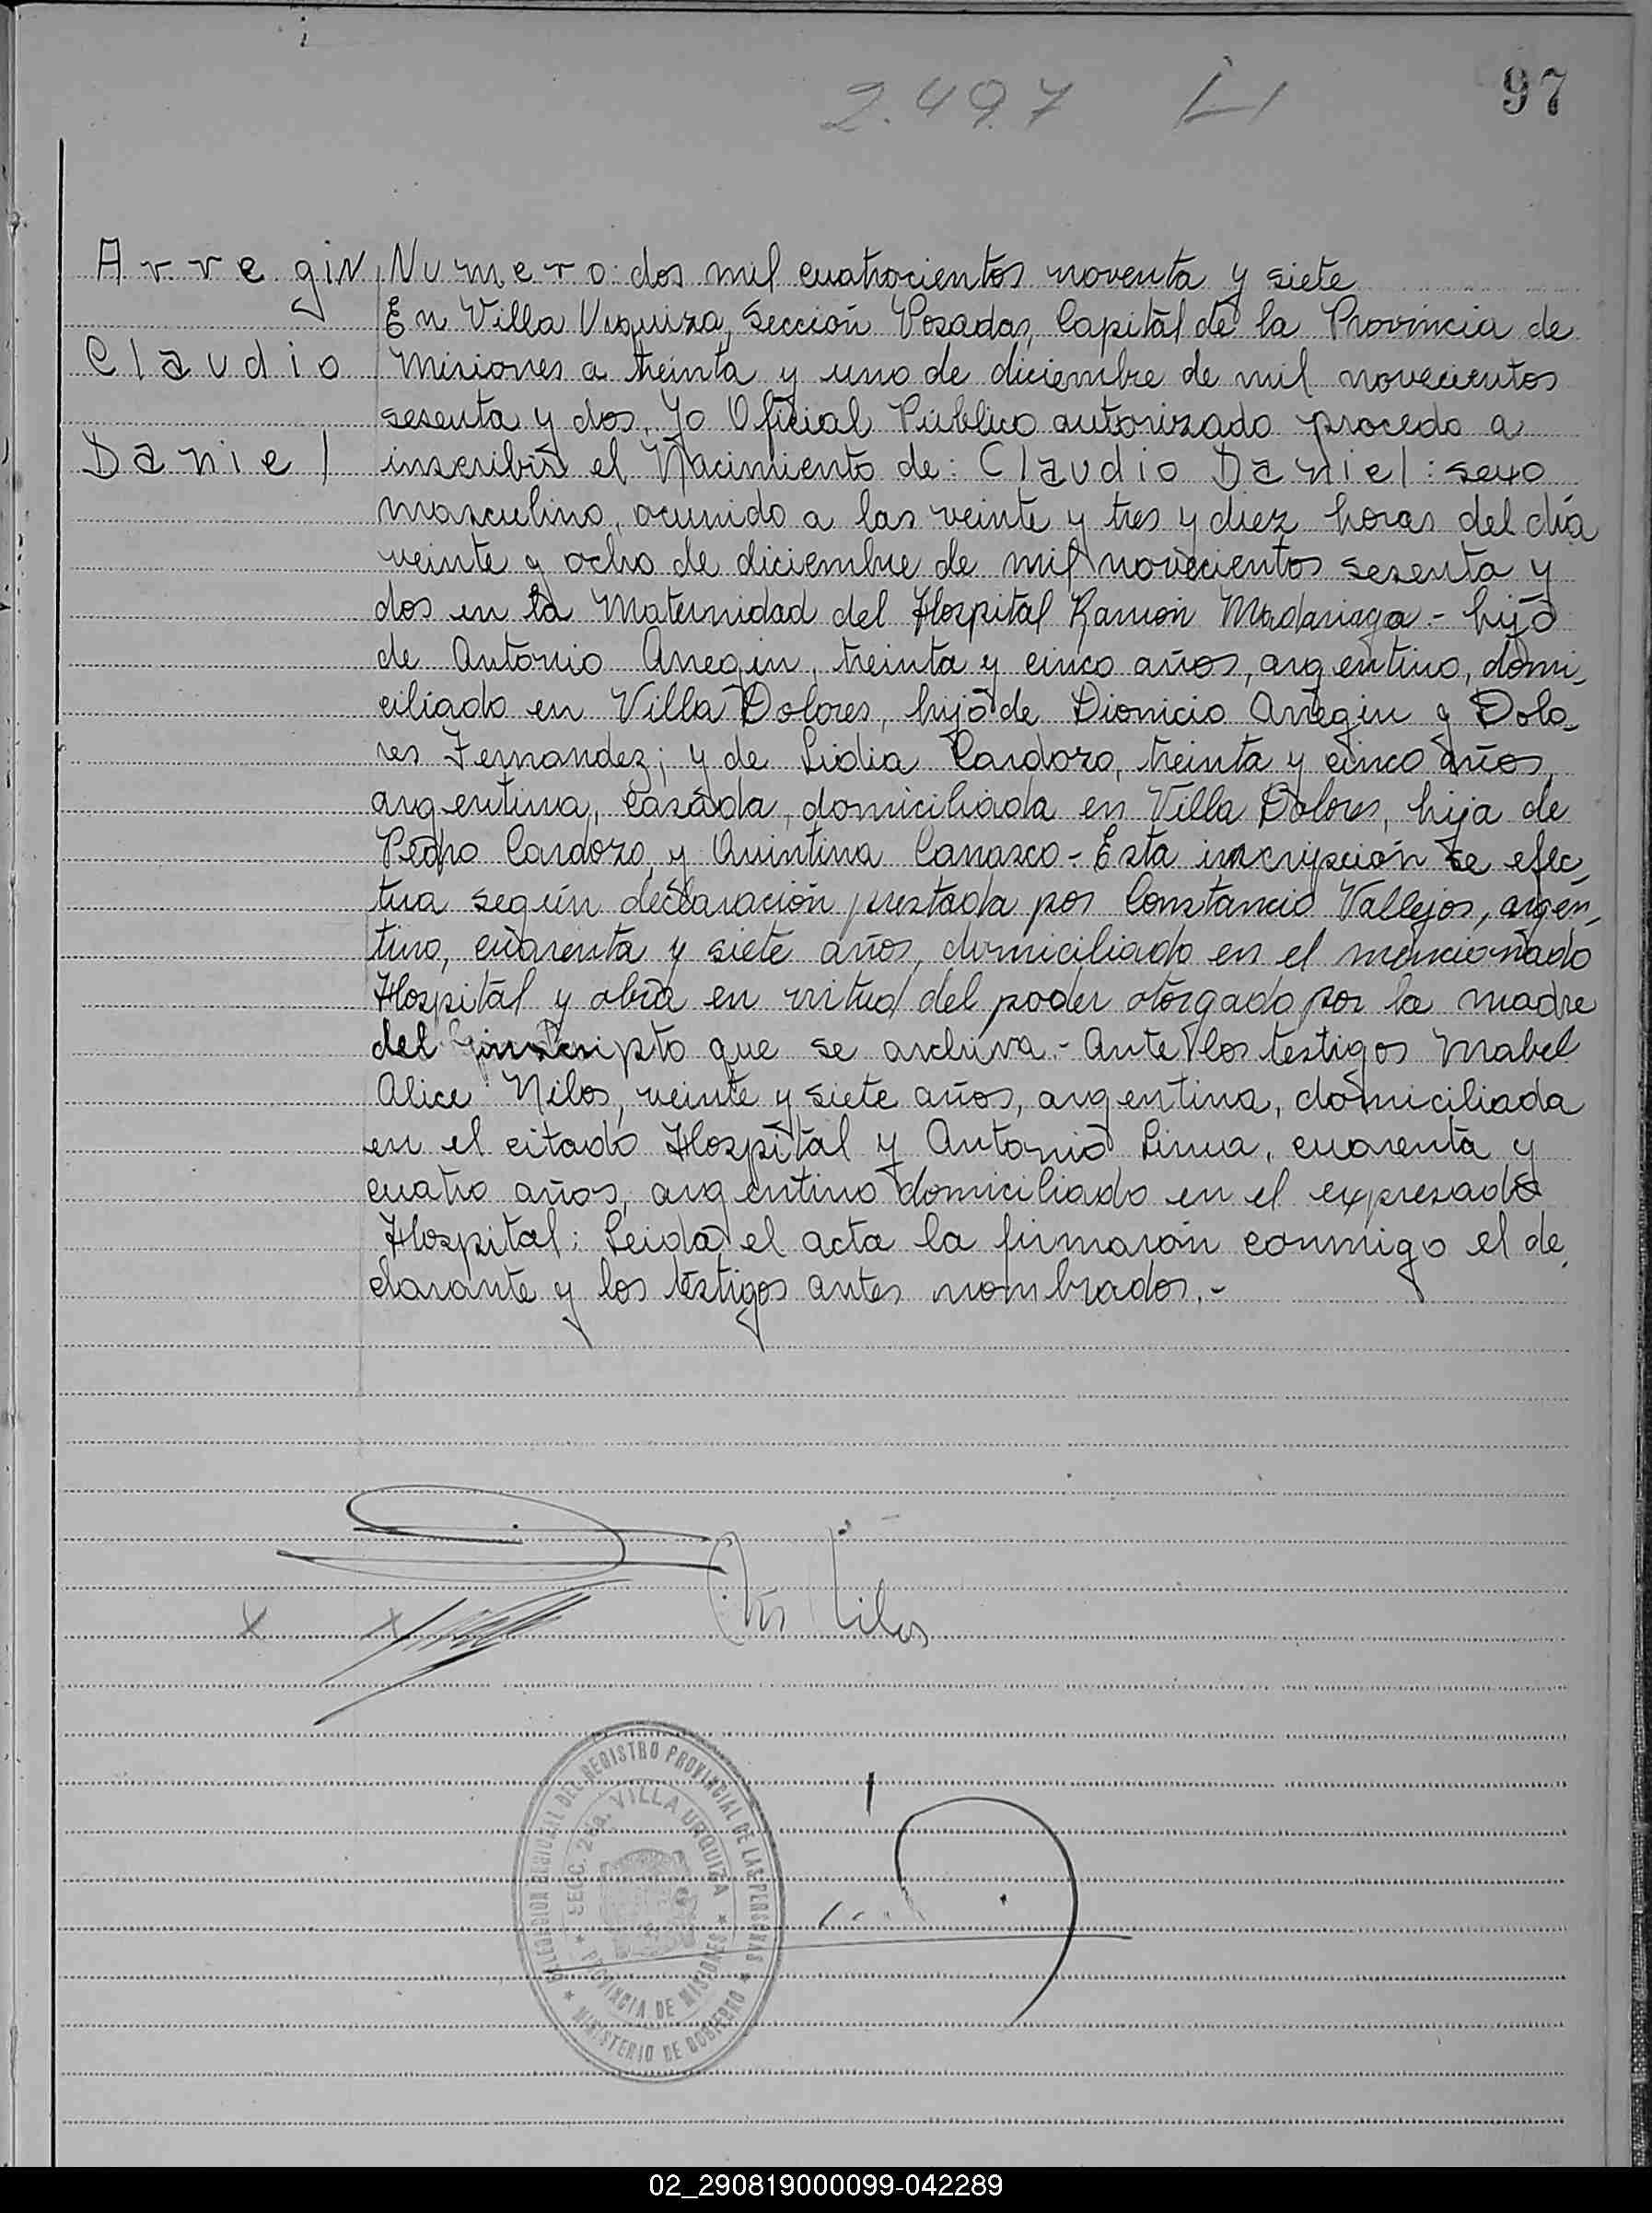 2.497
97
Arregin Numero: dos mil cuatrocientos noventa y siete
En Villa Urquiza, Sección Posadas, Capital de la Provincia de
Claudio Misiones a treinta y uno de diciembre de mil novecientos
sesenta y dos, Yo Oficial Público autorizado procedo a
Daniel inscribir el Nacimiento de: Claudio Daniel: sexo
masculino, ocurrido a las veinte y tres y diez horas del día
veinte y ocho de diciembre de mil novecientos sesenta y
dos en la Maternidad del Hospital Ramón Madariaga.- hijo
de Antonio Arregin, treinta y cinco años, argentino, domi-
ciliado en Villa Dolores, hijo de Dionicio Arregin y Dolo-
res Fernandez; y de Lidia Cardozo, treinta y cinco años,
argentina, casada, domiciliada en Villa Dolores, hija de
Pedro Cardozo y Quintina Carrasco.- Esta inscripción se efec-
tua según declaración prestada por Constancio Vallejos, argen-
tino, cuarenta y siete años, domiciliado en el mencionado
Hospital y obra en virtud del poder otorgado por la madre
del inscripto que se archiva.- Ante los testigos Mabel
Alice Nilos, veinte y siete años, argentina, domiciliada
en el citado Hospital y Antonio Lima, cuarenta y
cuatro años, argentino domiciliado en el expresado
Hospital; Leida el acta la firmarón conmigo el de-
clarante y los testigos antes nombrados.-
REGISTRO PROVINCIAL DE LAS PERSONAS
VILLA URQUIZA
PROVINCIA DE MISIONES
MINISTERIO DE GOBIERNO
02_290819000099-042289